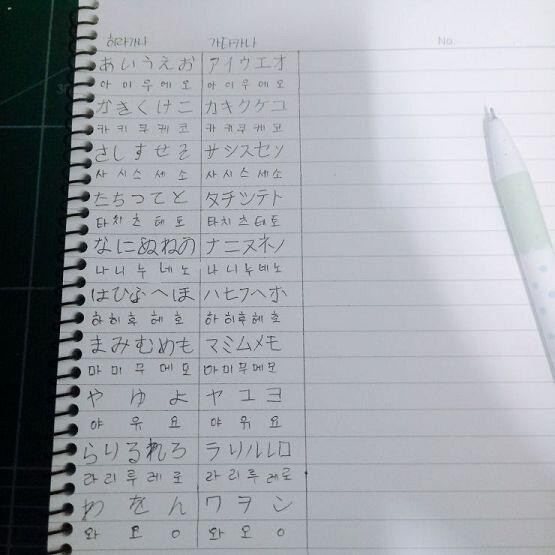 히라가나 가타카나 No.
あいうえお アイウエオ
아이우에오 아이우에오
かきくけこ カキクケコ
카키쿠케코 카키쿠케코
さしすせそ サシスセソ
사시스세소 사시스세소
たちつてと タチツテト
타치츠테토 타치츠테토
なにぬねの ナニヌネノ
나니누네노 나니누네노
はひふへほ ハヒフヘホ
하히후헤호 하히후헤호
まみむめも マミムメモ
마미무메모 마미무메모
やゆよ ヤユヨ
야유요 야유요
らりるれろ ラリルレロ
라리루레로 라리루레로
わをん ワヲン
와오ㅇ 와오ㅇ